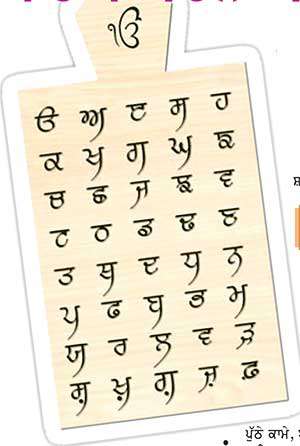 ੴ
ੳ ਅ ੲ ਸ ਹ
ਕ ਖ ਗ ਘ ਙ
ਚ ਛ ਜ ਝ ਞ
ਟ ਠ ਡ ਢ ਣ
ਤ ਥ ਦ ਧ ਨ
ਪ ਫ ਬ ਭ ਮ
ਯ ਰ ਲ ਵ ੜ
ਸ਼ ਖ਼ ਗ਼ ਜ਼ ਫ਼
ਪੁੱਠੇ ਕਾਮੇ,